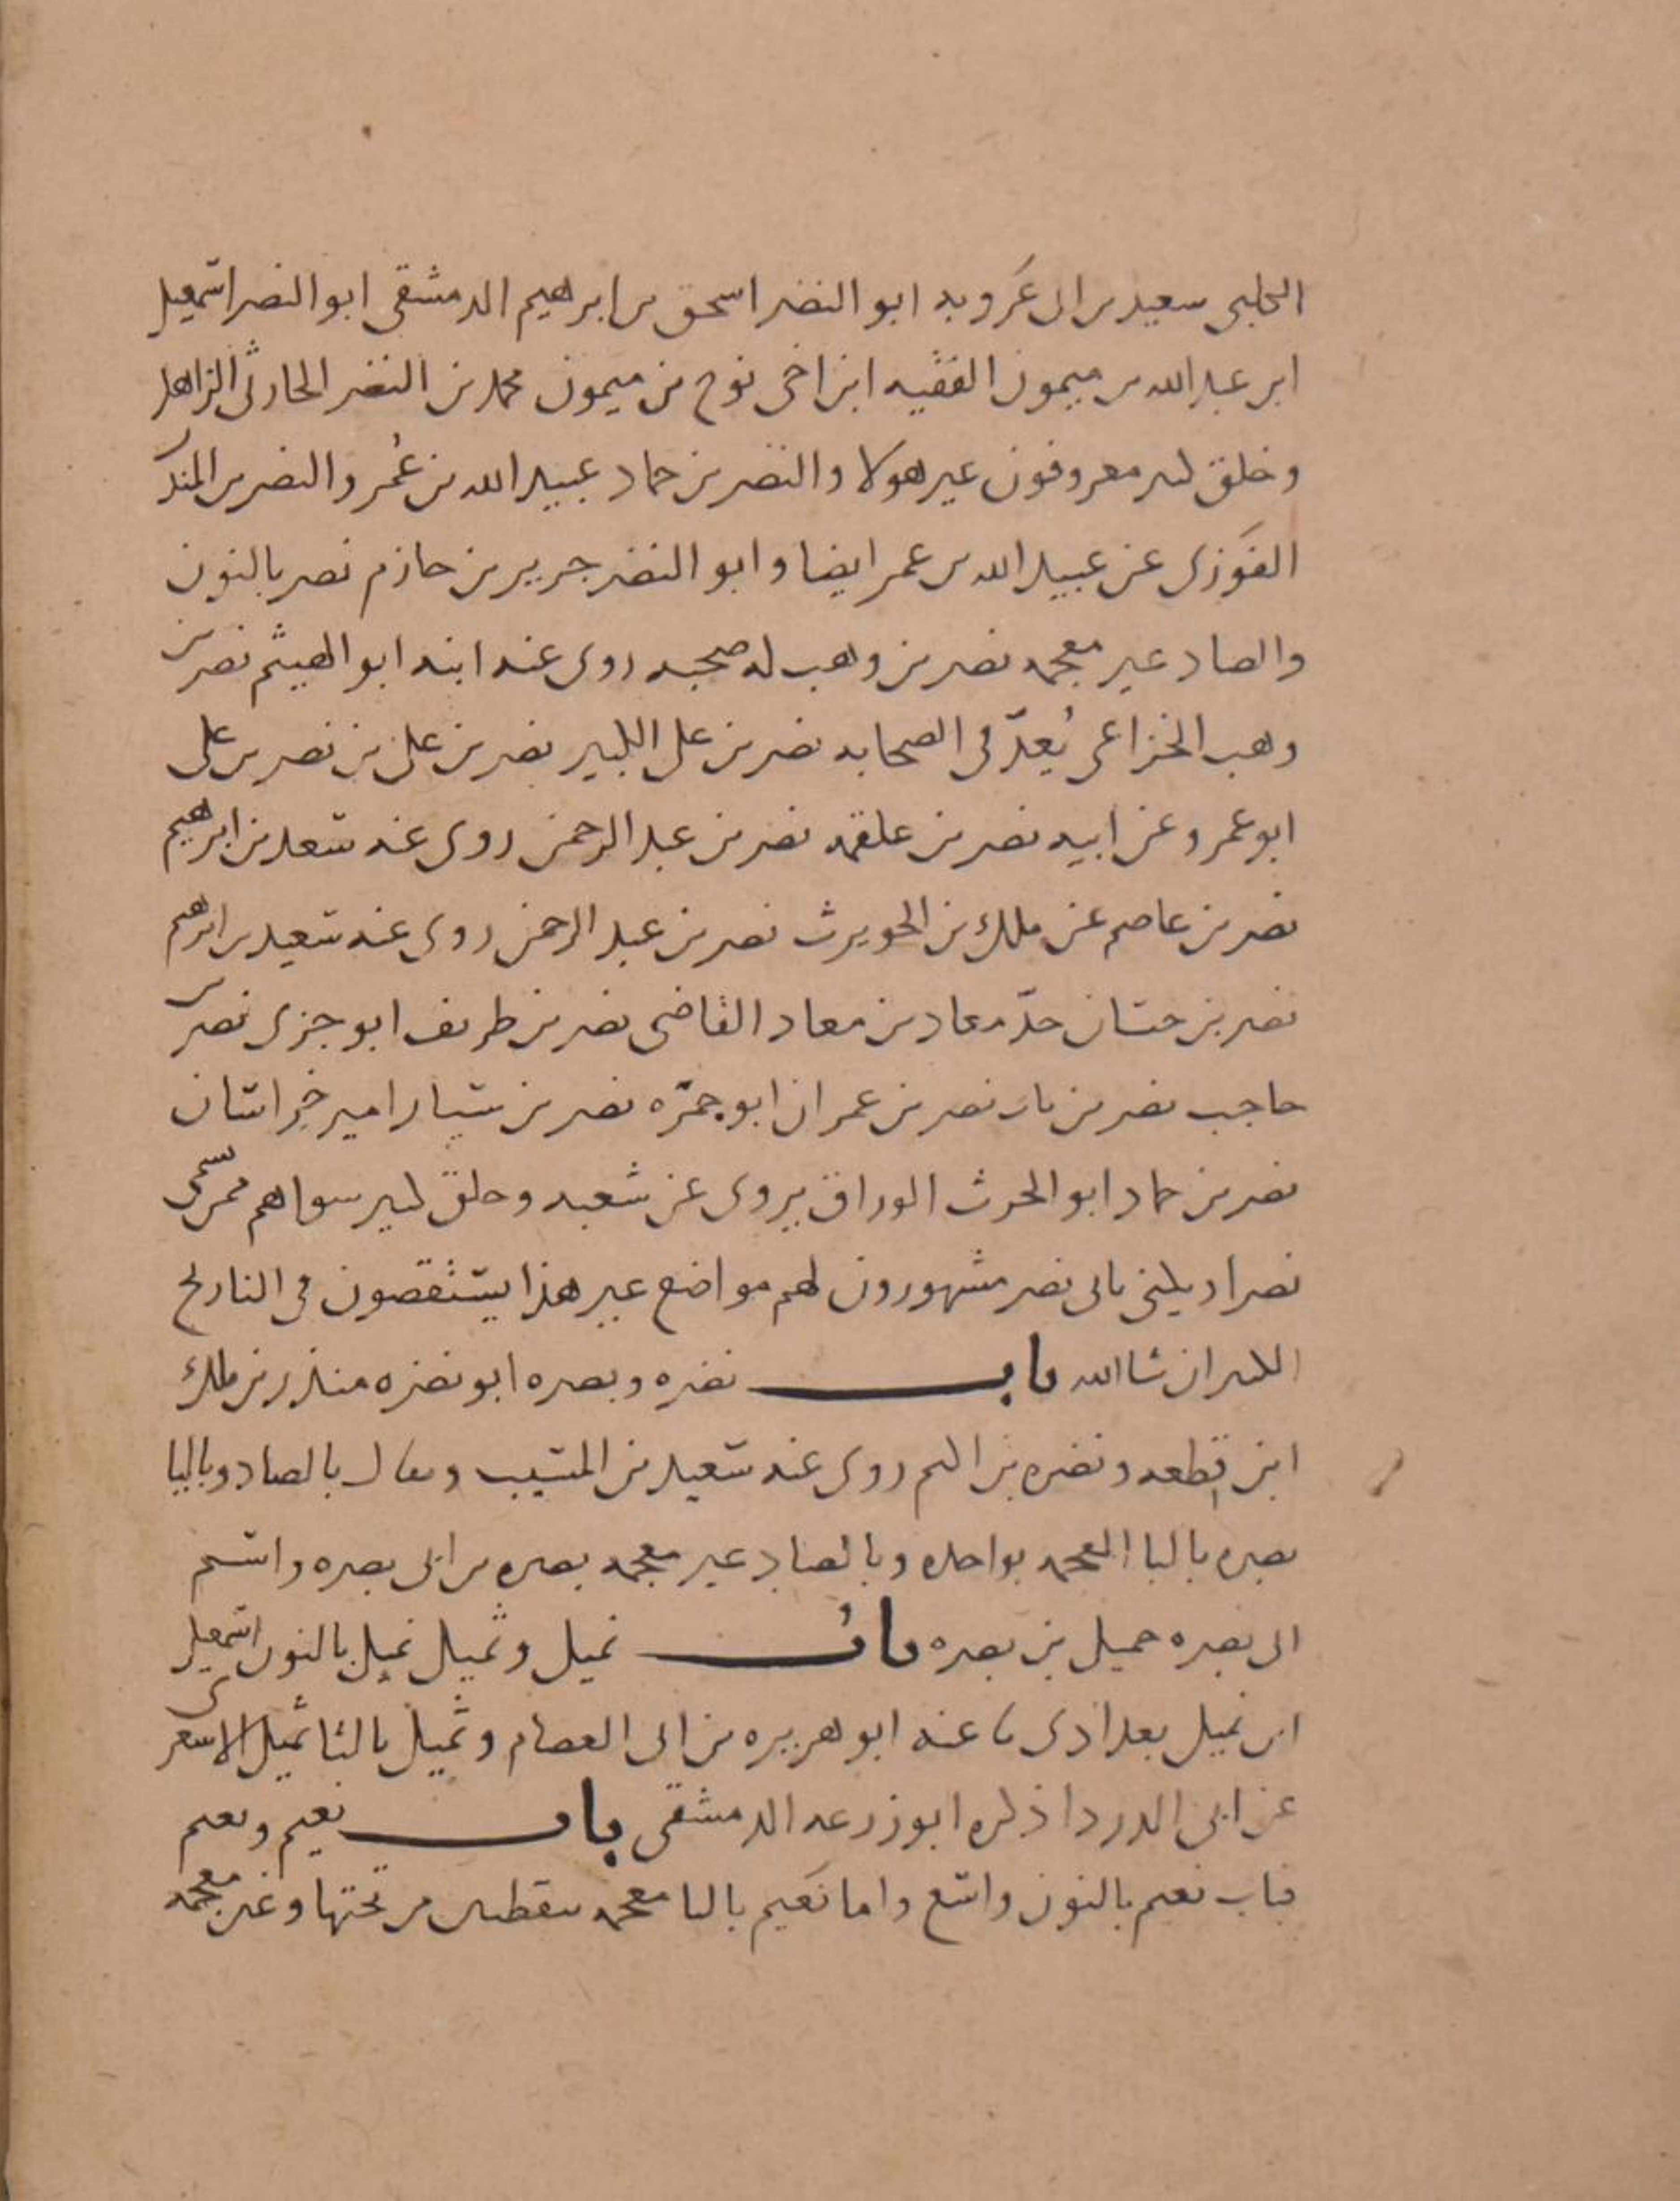 الحلبى سعيد بن ابى عَروبه ابو النضر اسحق بن ابرهيم الدمشقى ابو النضر اسمعيل
ابن عبد الله بن ميمون الفقيه ابن اخى نوح بن ميمون محمد بن النضر الحارثى الزاهد
وخلق كثير معروفون غير هولا والنضر بن حماد عبيد الله بن عُمر والنضر بن المنذر
الفَوزى عن عبيد الله بن عمر ايضا وابو النضر جرير بن حازم نصر بالنون
والصاد غير معجمه نصر بن وهب له صحبه روى عنه ابنه ابو الهيثم نصر بن
وهب الخزاعى يُعدّ فى الصحابه نصر بن على الكبير نصر بن على بن نصر بن على
ابو عمرو عن ابيه نصر بن علقمه نصر بن عبد الرحمن روى عنه سعد بن ابرهيم
نصر بن عاصم عن ملك بن الحويرث نصر بن عبد الرحمن روى عنه سعيد بن ابرهيم
نصر بن حسان جدّ معاد بن معاد القاضى نصر بن طريف ابو جزى نصر بن
حاجب نصر بن باب نصر بن عمران ابو جمَره نصر بن سيار امير خراسان
نصر بن حماد ابو الحرث الوراق يروى عن شعبه وخلق كثير سواهم ممن يسمى
نصر او يكنى بابى نصر مشهورون لهم مواضع غير هذا يستقصون فى التاريخ
الكبير ان شا الله باب نضره وبصره ابو نضره منذر بن ملك
ابن قطعه ونضره بن اكثم روى عنه سعيد بن المسيب ويقال بالصاد وبالبا
بصره بالبا المعجمه بواحده وبالصاد غير معجمه بصره بن ابى بصره واسم
ابى بصره حميل بن بصره باب نميل وثميل نميل بالنون اسمعيل
ابن نميل بغدادى نا عنه ابو هريره بن ابى العصام وثميل بالثا ثميل الاشعرى
عن ابى الدردا ذكره ابو زرعه الدمشقى باب نعيم ويعيم
فباب نعيم بالنون واسع واما يَعيم باليا معجمه بنقطتين من تحتها وغير معجمه